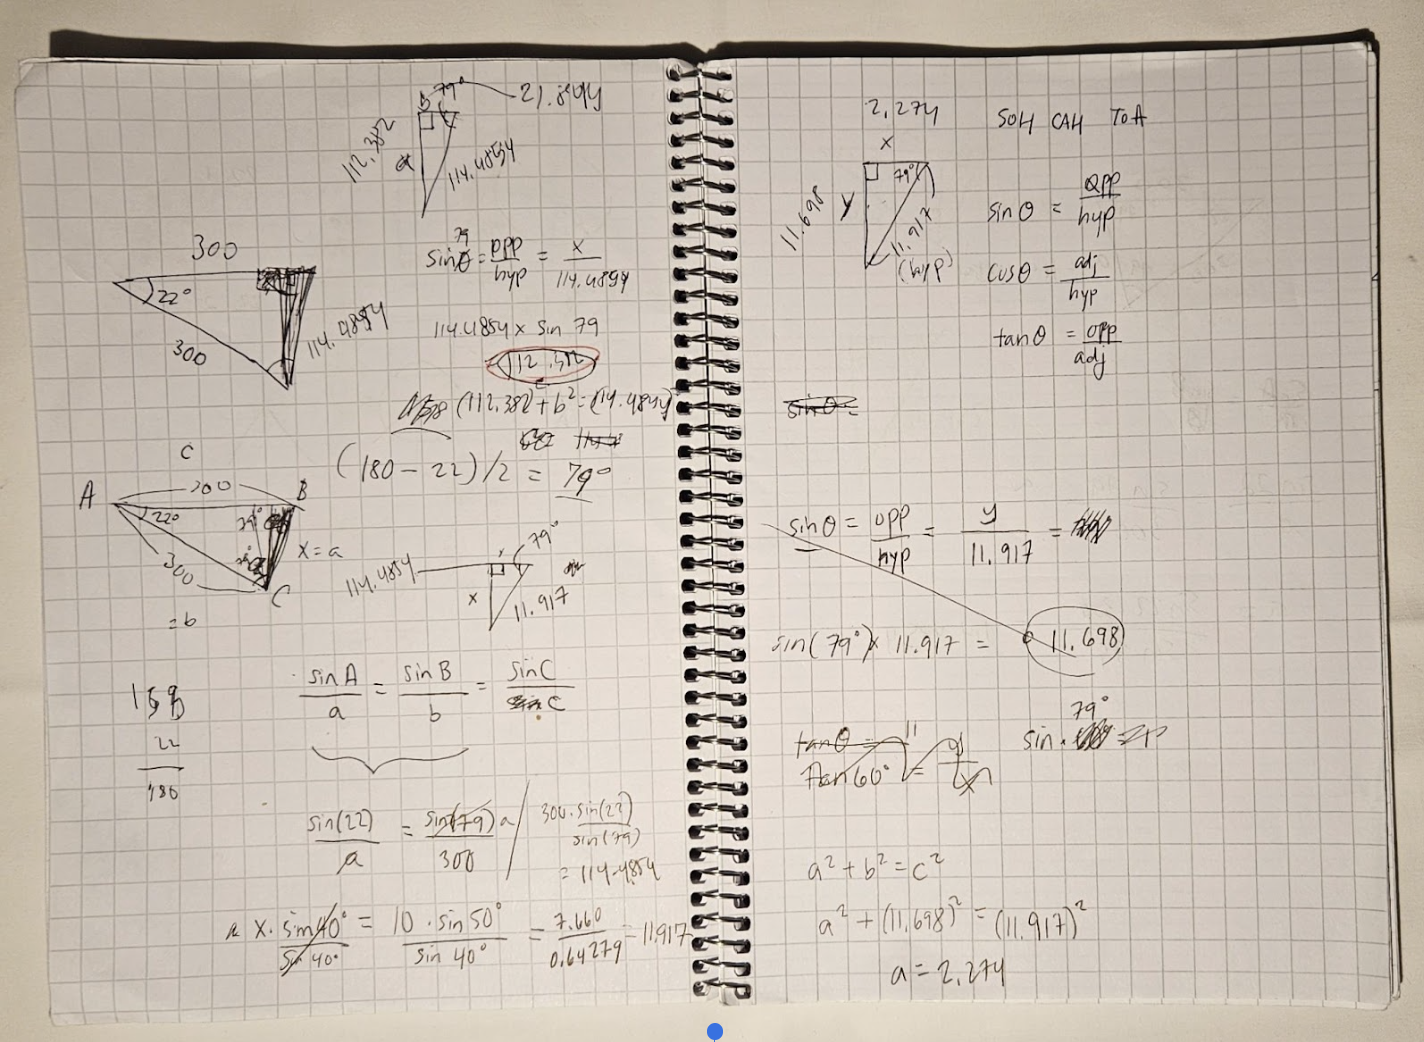 79°
21.8444
112.382
114.4854
300
22°
300
114.4854
sinθ = opp/hyp = x/114.4854
79
114.4854 x sin 79
112.382
(112.382)² + b² = (114.4844)²
(180 - 22)/2 = 79°
C
A
300
B
22°
79°
300
x = a
C
= b
79°
114.4854
x
11.917
sin A/a = sin B/b = sin C/C
158
22
180
sin(22)/a = sin(79)/300
a
300·sin(22)/sin(79)
= 114.4854
x · sin 40°/sin 40° = 10 · sin 50°/sin 40° = 7.660/0.64279 = 11.917
2.274
x
79°
y
11.698
11.917
(hyp)
SOH CAH TOA
sin θ = opp/hyp
cos θ = adj/hyp
tan θ = opp/adj
sin θ =
sin θ = opp/hyp = y/11.917 =
sin(79°) x 11.917 = 11.698
tan θ =
Tan 60° = y/x
79°
sin ·
a² + b² = c²
a² + (11.698)² = (11.917)²
a = 2.274